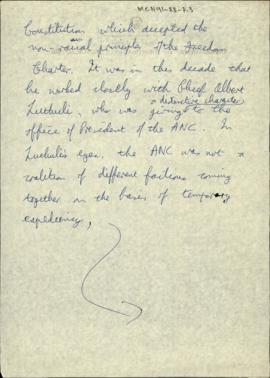 MCH91-88-7.3
Constitution which accepted the
non-racial principles of the Freedom
Charter. It was in this decade that
he worked closely with Chief Albert
a distinctive character
Luthuli, who was giving to the
office of President of the ANC. In
Luthuli's eyes, the ANC was not a
coalition of different factions coming
together on the bases of temporary
expediency,